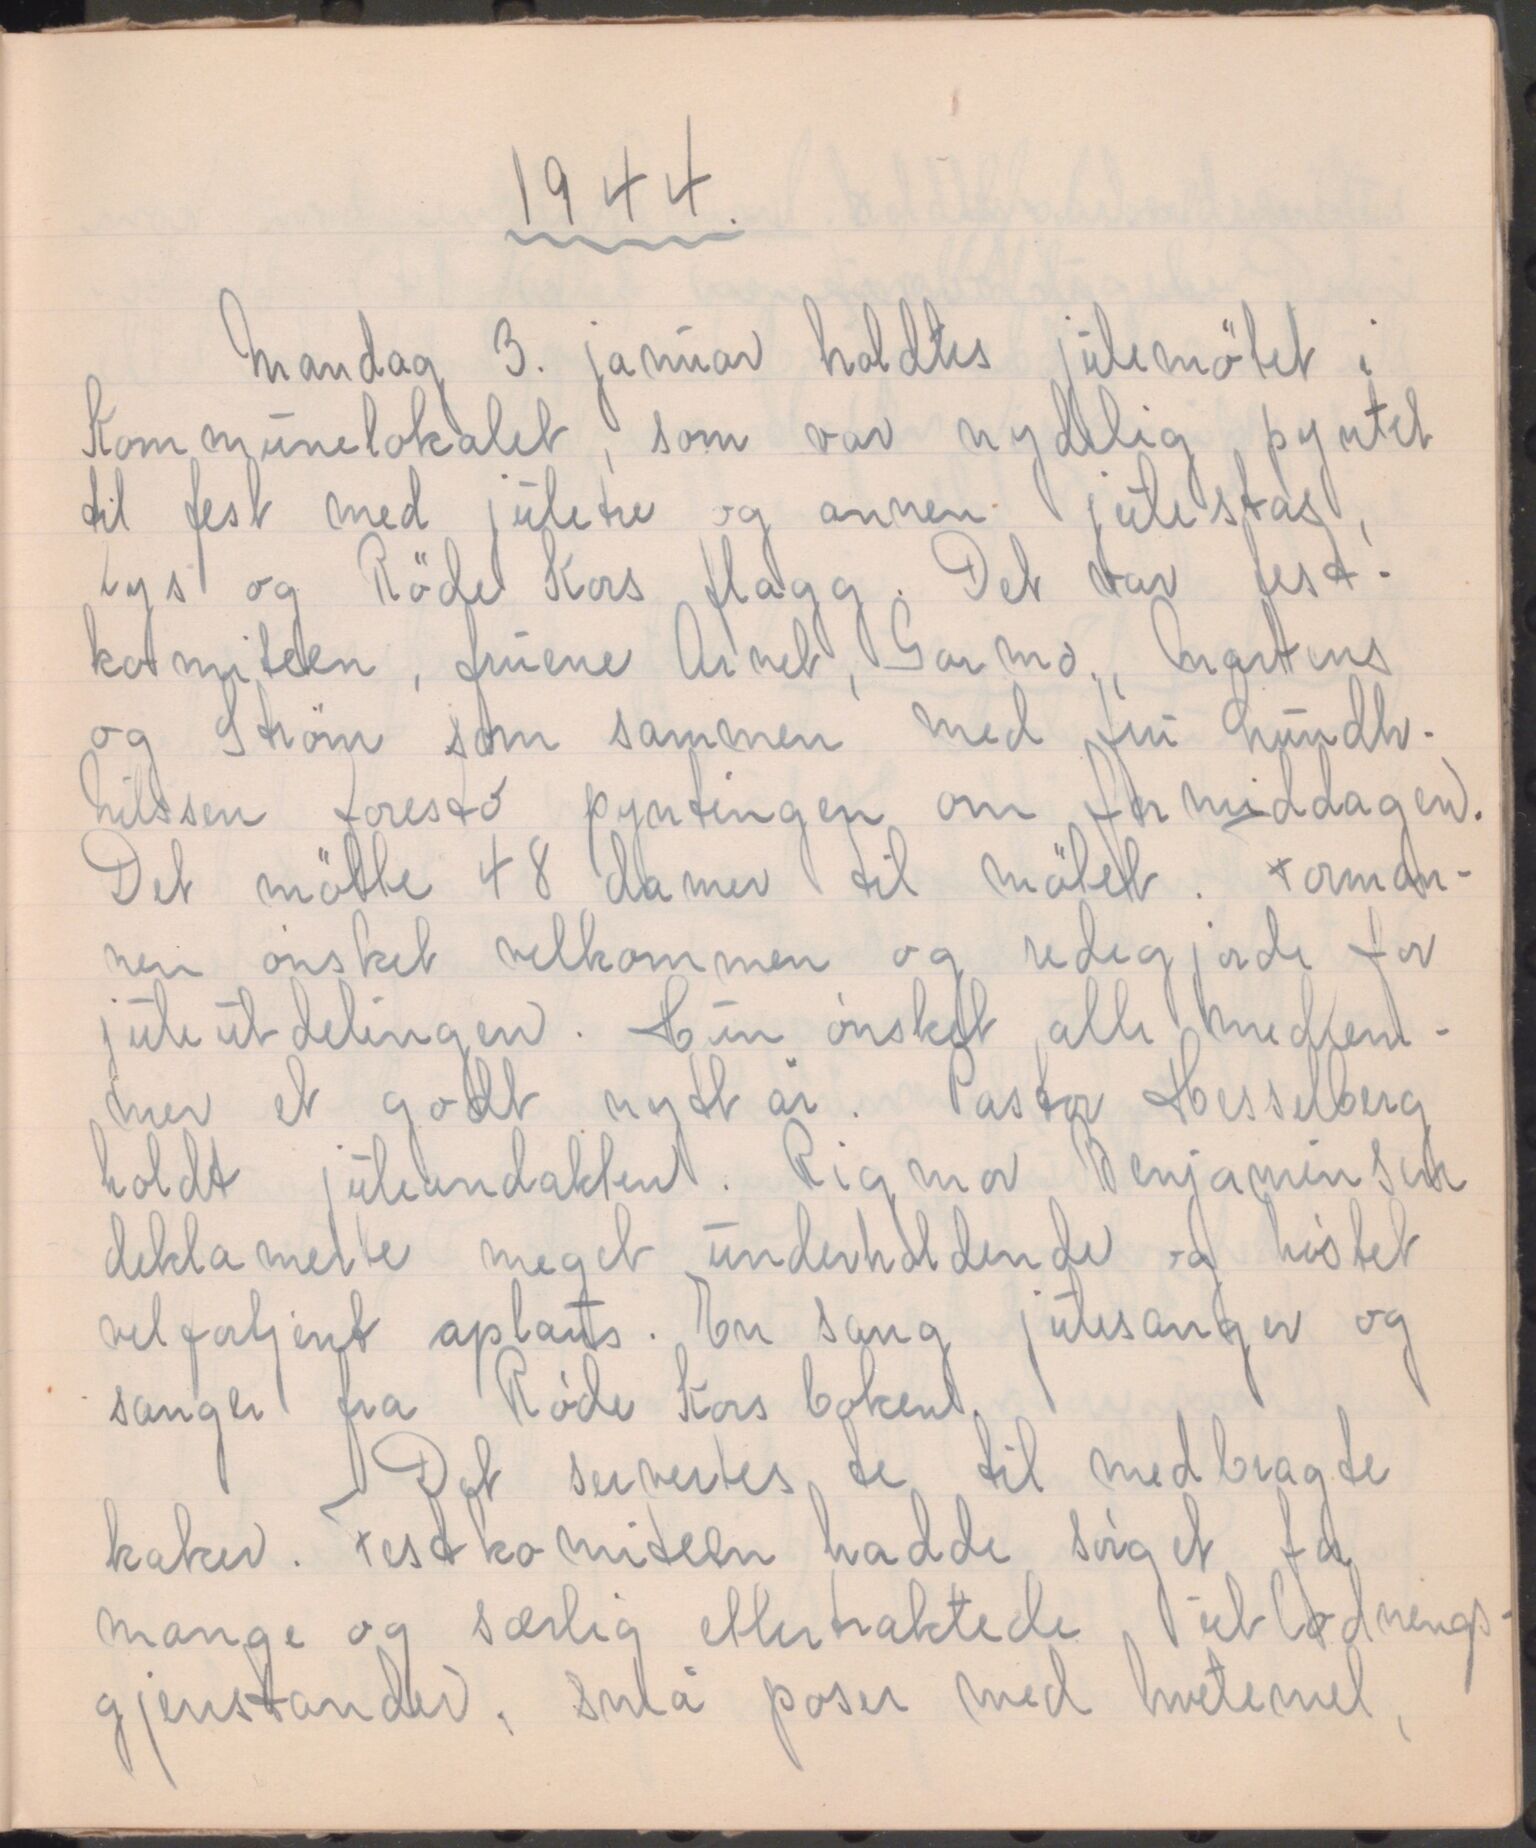 1944.
Mandag 3. januar holdtes julemötet i
Kommunelokalet, som var nydelig pyntet
til fest med juletre og annen julestas,
lys og Röde Kors flagg. Det var fest-
komiteen, fruene Arnet, Garmo, Martens
og Ström som sammen med fru Mundh-
Nilssen foresto pyntingen om formiddagen.
Det mötte 48 damer til mötet. Forman-
nen ønsket velkommen og redegjorde for
juleutdelingen. Hun ønsket alle medlem-
mer et godt nytt år. Pastor Hesselberg
holdt juleandakten. Rigmor Benjaminsen
deklamerte meget underholdende og høstet
velfortjent aplaus. En sang julesanger og
sanger fra Røde Kors boken.
Det servertes te til medbragte
kaker. Festkomiteen hadde sørget for
mange og særlig ettertraktede utlodnings-
gjenstander, små poser med hvetemel,